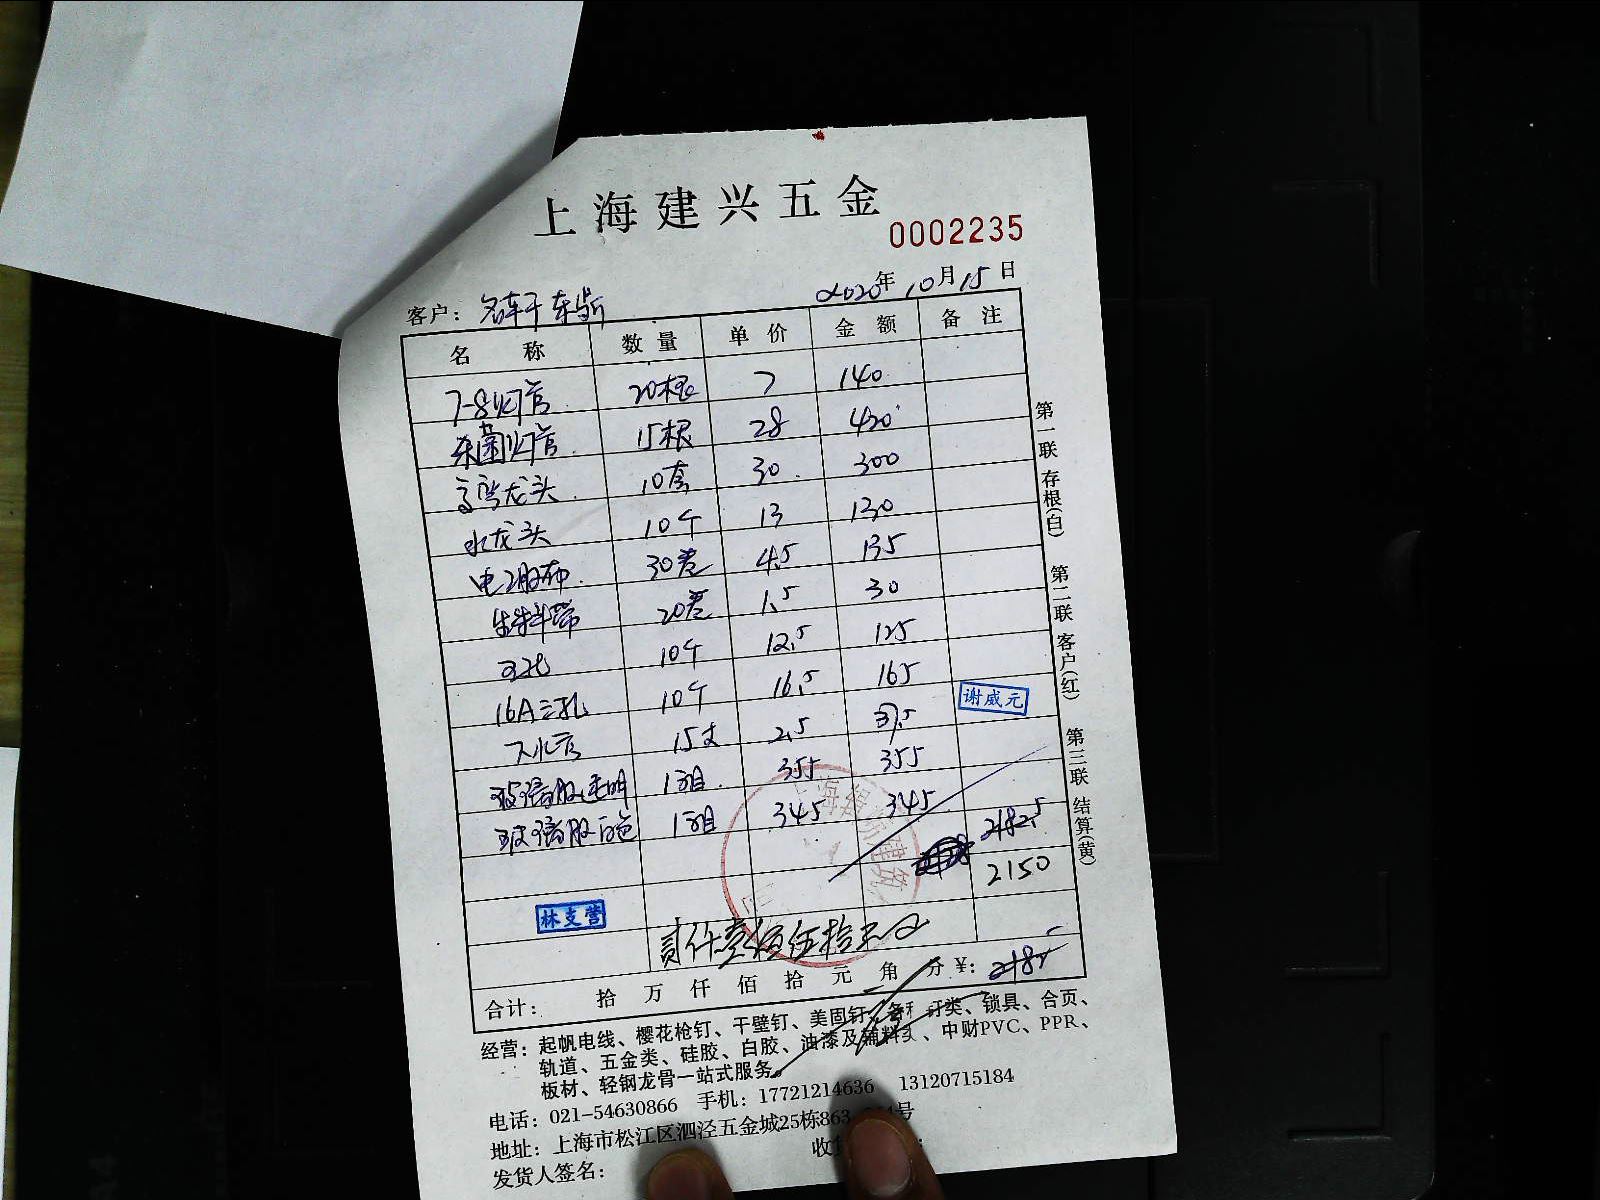 上海建兴五金
0002235
客户： 2020年10月15日
名称 数量 单价 金额 备注
7-8灯管 20根 7 140
杀菌灯管 15根 28 420
高弯龙头 10套 30 300
水龙头 10个 13 130
电工胶布 30卷 4.5 135
生料带 20卷 1.5 30
五孔 10个 12.5 125
16A三孔 10个 16.5 165
谢威元
下水管 15支 2.5 37.5
玻璃胶透明 1箱 355 355
玻璃胶白色 1箱 345 345
2182.5
2150
林支营
贰仟壹佰伍拾元正
合计： 拾万仟佰拾元角分¥：
经营：起帆电线、樱花枪钉、干壁钉、美固钉、各种钉类、锁具、合页、
轨道、五金类、硅胶、白胶、油漆及辅料类、中财PVC、PPR、
板材、轻钢龙骨一站式服务。
电话：021-54630866 手机：17721214636 13120715184
地址：上海市松江区泗泾五金城25栋863 号
发货人签名： 收
第一联 存根(白) 第二联 客户(红) 第三联 结算(黄)